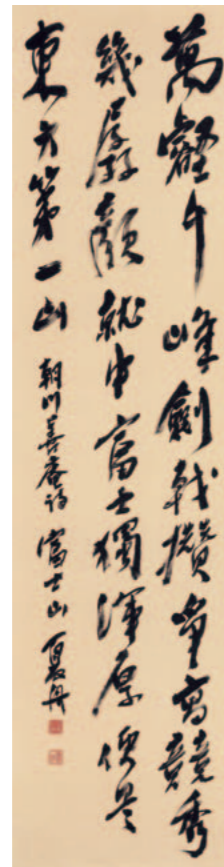 萬壑千峰劍戟攢爭高競秀
幾孱顏就中富士獨渾厚便是
東方第一山 朝川善庵詩 富士山